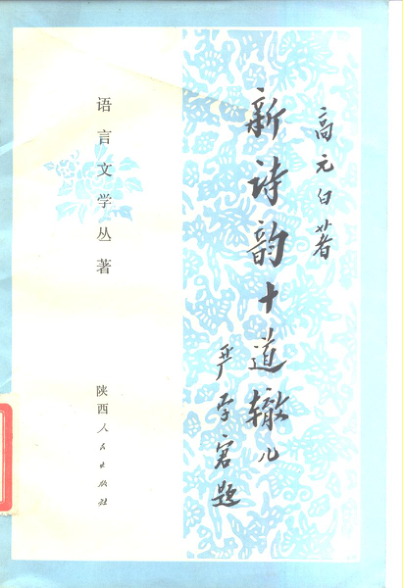 高元白著
新诗韵十道辙儿
严学宭题
语言文学丛著
陕西人民出版社